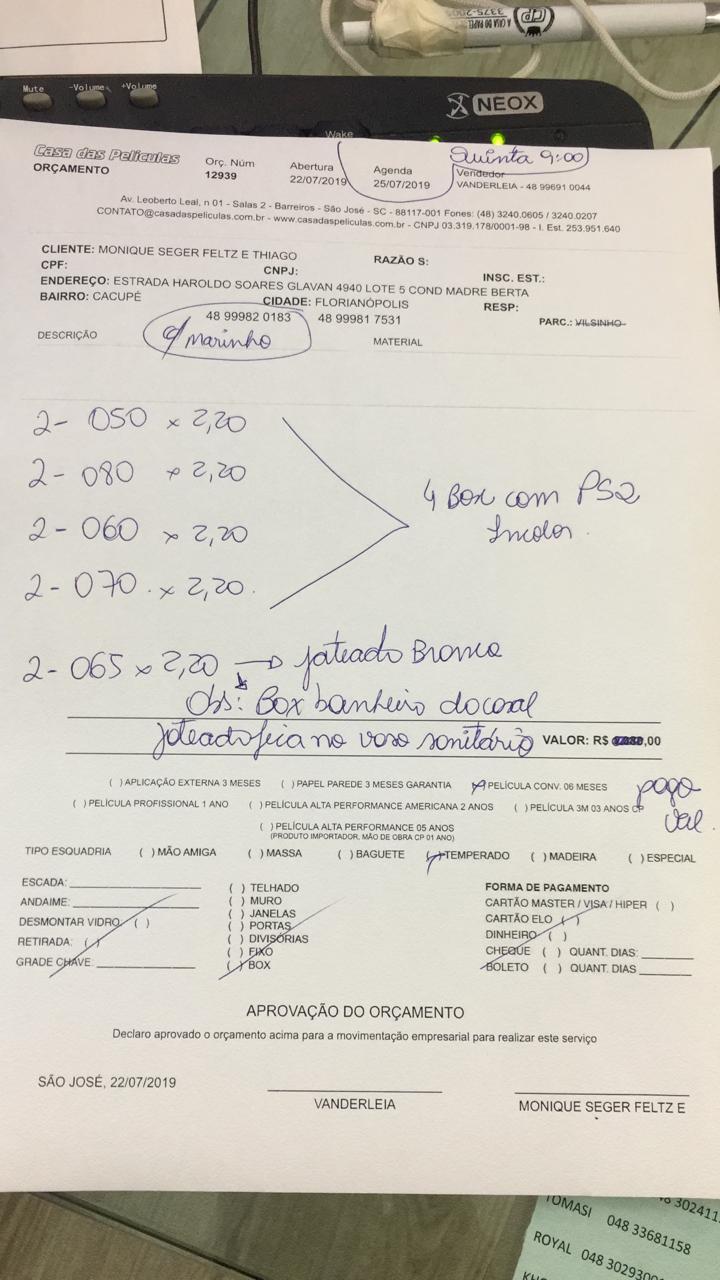 A CASA DO PAPEL
3375-200
CP
Mute -Volume +Volume
NEOX
Wake
Casa das Películas
ORÇAMENTO
Orç. Núm
12939
Abertura
22/07/2019
Agenda
25/07/2019
Quinta 9:00
Vendedor
VANDERLEIA - 48 99691 0044
Av. Leoberto Leal, n 01 - Salas 2 - Barreiros - São José - SC - 88117-001 Fones: (48) 3240.0605 / 3240.0207
CONTATO@casadaspeliculas.com.br - www.casadaspeliculas.com.br - CNPJ 03.319.178/0001-98 - I. Est. 253.951.640
CLIENTE: MONIQUE SEGER FELTZ E THIAGO RAZÃO S:
CPF: CNPJ: INSC. EST.:
ENDEREÇO: ESTRADA HAROLDO SOARES GLAVAN 4940 LOTE 5 COND MADRE BERTA
BAIRRO: CACUPÉ CIDADE: FLORIANÓPOLIS RESP:
48 99982 0183 48 99981 7531 PARC.: VILSINHO
c/ marinho
DESCRIÇÃO MATERIAL
2- 050 x 2,20
2- 080 x 2,20
2- 060 x 2,20
2- 070 x 2,20
4 Box com PS2
Incolor
2- 065 x 2,20 → jateado Branco
Obs: Box banheiro do casal
jateado fica no vaso sanitário VALOR: R$ ,00
( ) APLICAÇÃO EXTERNA 3 MESES ( ) PAPEL PAREDE 3 MESES GARANTIA PELÍCULA CONV. 06 MESES
pago
Val.
( ) PELÍCULA PROFISSIONAL 1 ANO ( ) PELÍCULA ALTA PERFORMANCE AMERICANA 2 ANOS ( ) PELÍCULA 3M 03 ANOS CP
( ) PELÍCULA ALTA PERFORMANCE 05 ANOS
(PRODUTO IMPORTADOR, MÃO DE OBRA CP 01 ANO)
TIPO ESQUADRIA ( ) MÃO AMIGA ( ) MASSA ( ) BAGUETE ( ) TEMPERADO ( ) MADEIRA ( ) ESPECIAL
ESCADA:
ANDAIME:
DESMONTAR VIDRO: ( )
RETIRADA: ( )
GRADE CHAVE:
( ) TELHADO
( ) MURO
( ) JANELAS
( ) PORTAS
( ) DIVISÓRIAS
( ) FIXO
( ) BOX
FORMA DE PAGAMENTO
CARTÃO MASTER / VISA / HIPER ( )
CARTÃO ELO ( )
DINHEIRO ( )
CHEQUE ( ) QUANT. DIAS:
BOLETO ( ) QUANT. DIAS
APROVAÇÃO DO ORÇAMENTO
Declaro aprovado o orçamento acima para a movimentação empresarial para realizar este serviço
SÃO JOSÉ, 22/07/2019
VANDERLEIA
MONIQUE SEGER FELTZ E
TOMASI 048 33681158
ROYAL 048 3029300